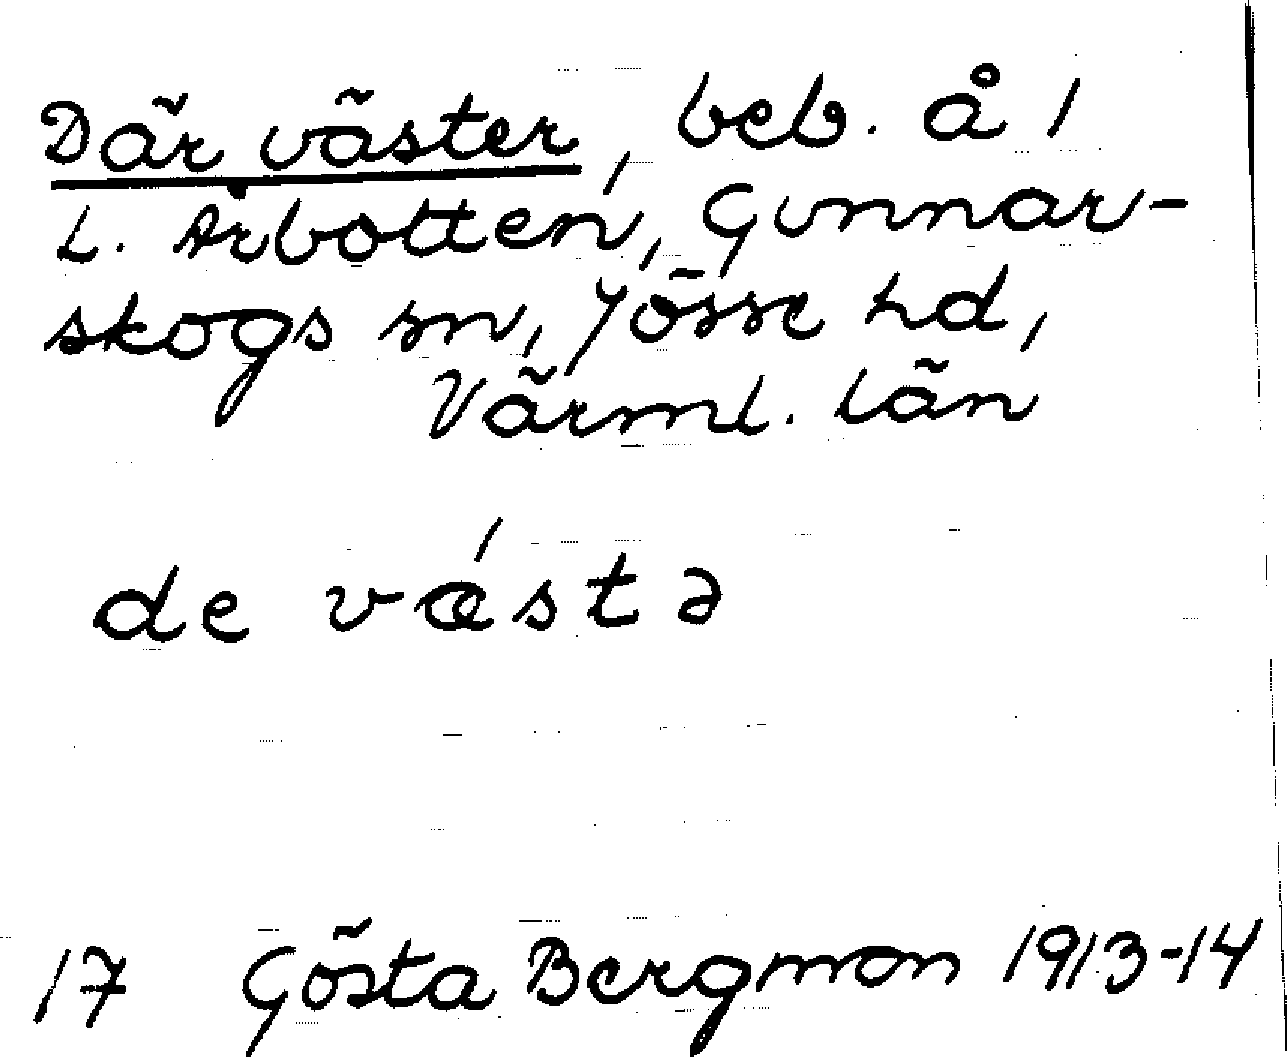 Där väster, beb. å 1
L. Årbotten, Gunnar-
skogs sn, Jösse hd,
Värml. län
de vǽstə
17 Gösta Bergman 1913-14